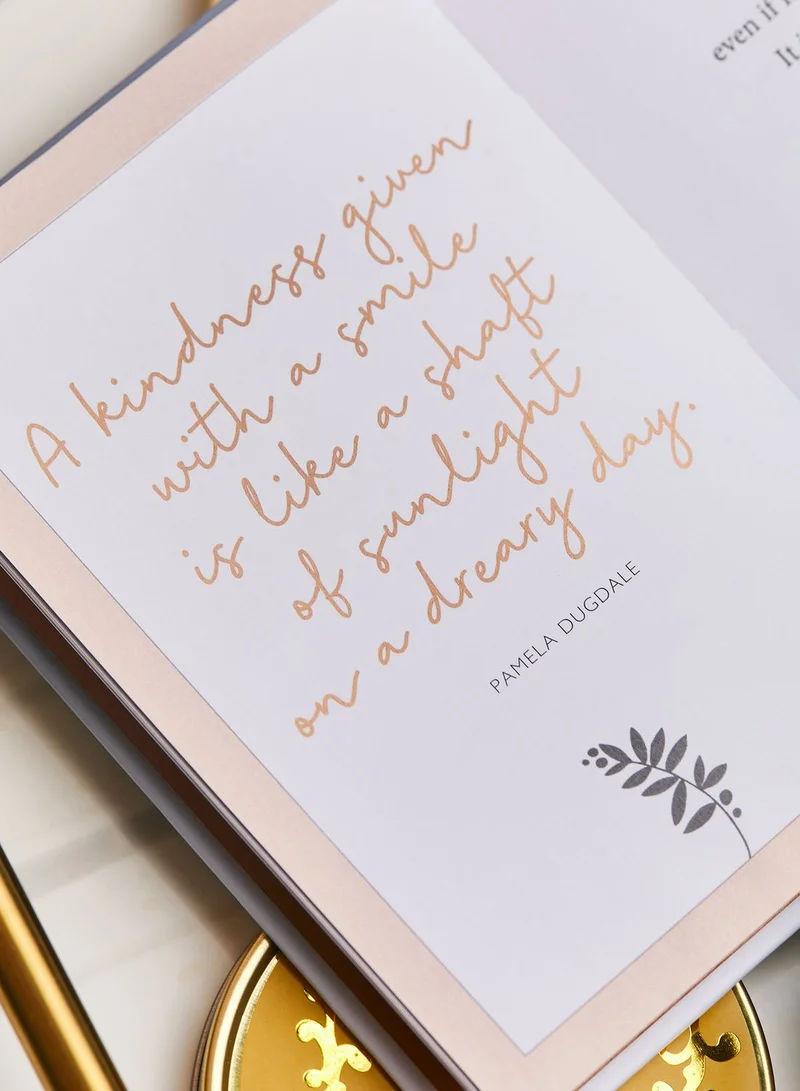 A kindness given
with a smile
is like a shaft
of sunlight
on a dreary day.
PAMELA DUGDALE
even if